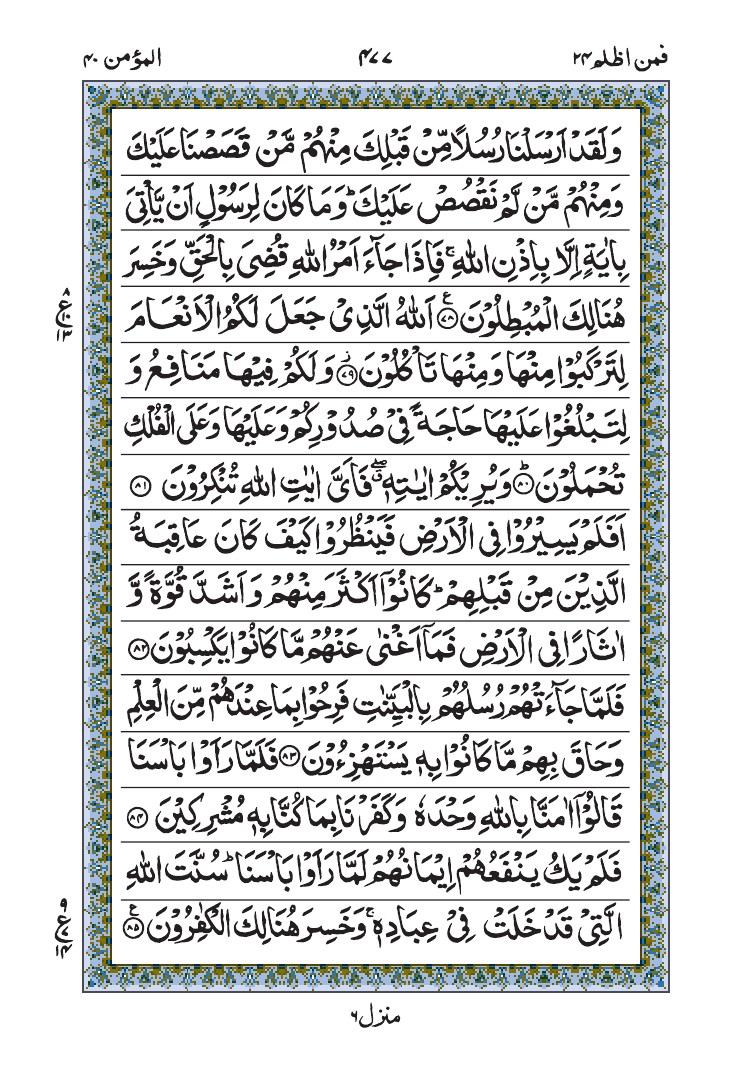 فمن اظلم ۲۴
۴۷۷
المؤمن ۴۰
وَلَقَدْ اَرْسَلْنَا رُسُلًا مِّنْ قَبْلِكَ مِنْهُمْ مَّنْ قَصَصْنَا عَلَيْكَ
وَمِنْهُمْ مَّنْ لَّمْ نَقْصُصْ عَلَيْكَ ؕ وَمَا كَانَ لِرَسُوْلٍ اَنْ يَّاْتِيَ
بِاٰيَةٍ اِلَّا بِاِذْنِ اللّٰهِ ۚ فَاِذَا جَآءَ اَمْرُ اللّٰهِ قُضِيَ بِالْحَقِّ وَخَسِرَ
هُنَالِكَ الْمُبْطِلُوْنَ ۧ۷۸ اَللّٰهُ الَّذِيْ جَعَلَ لَكُمُ الْاَنْعَامَ
لِتَرْكَبُوْا مِنْهَا وَمِنْهَا تَاْكُلُوْنَ ؗ۷۹ وَلَكُمْ فِيْهَا مَنَافِعُ وَ
لِتَبْلُغُوْا عَلَيْهَا حَاجَةً فِيْ صُدُوْرِكُمْ وَعَلَيْهَا وَعَلَى الْفُلْكِ
تُحْمَلُوْنَ ؕ۸۰ وَيُرِيْكُمْ اٰيٰتِهٖ ۖۗ فَاَيَّ اٰيٰتِ اللّٰهِ تُنْكِرُوْنَ ۸۱
اَفَلَمْ يَسِيْرُوْا فِي الْاَرْضِ فَيَنْظُرُوْا كَيْفَ كَانَ عَاقِبَةُ
الَّذِيْنَ مِنْ قَبْلِهِمْ ؕ كَانُوْٓا اَكْثَرَ مِنْهُمْ وَاَشَدَّ قُوَّةً وَّ
اٰثَارًا فِي الْاَرْضِ فَمَآ اَغْنٰى عَنْهُمْ مَّا كَانُوْا يَكْسِبُوْنَ ۸۲
فَلَمَّا جَآءَتْهُمْ رُسُلُهُمْ بِالْبَيِّنٰتِ فَرِحُوْا بِمَا عِنْدَهُمْ مِّنَ الْعِلْمِ
وَحَاقَ بِهِمْ مَّا كَانُوْا بِهٖ يَسْتَهْزِءُوْنَ ۸۳ فَلَمَّا رَاَوْا بَاْسَنَا
قَالُوْٓا اٰمَنَّا بِاللّٰهِ وَحْدَهٗ وَكَفَرْنَا بِمَا كُنَّا بِهٖ مُشْرِكِيْنَ ۸۴
فَلَمْ يَكُ يَنْفَعُهُمْ اِيْمَانُهُمْ لَمَّا رَاَوْا بَاْسَنَا ؕ سُنَّتَ اللّٰهِ
الَّتِيْ قَدْ خَلَتْ فِيْ عِبَادِهٖ ۚ وَخَسِرَ هُنَالِكَ الْكٰفِرُوْنَ ۧ۸۵
۸
ع
۱۳
۹
ع
۱۴
منزل ۶